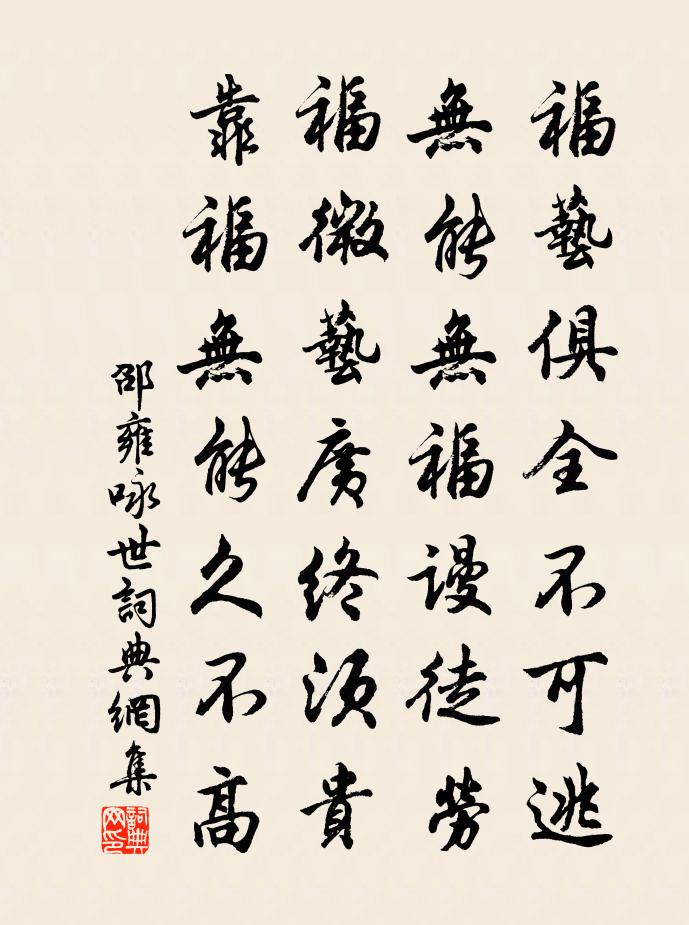 福藝俱全不可逃
無能無福謾徒勞
福微藝廣終須貴
靠福無能久不高
邵雍咏世詞典網集
詞典网印